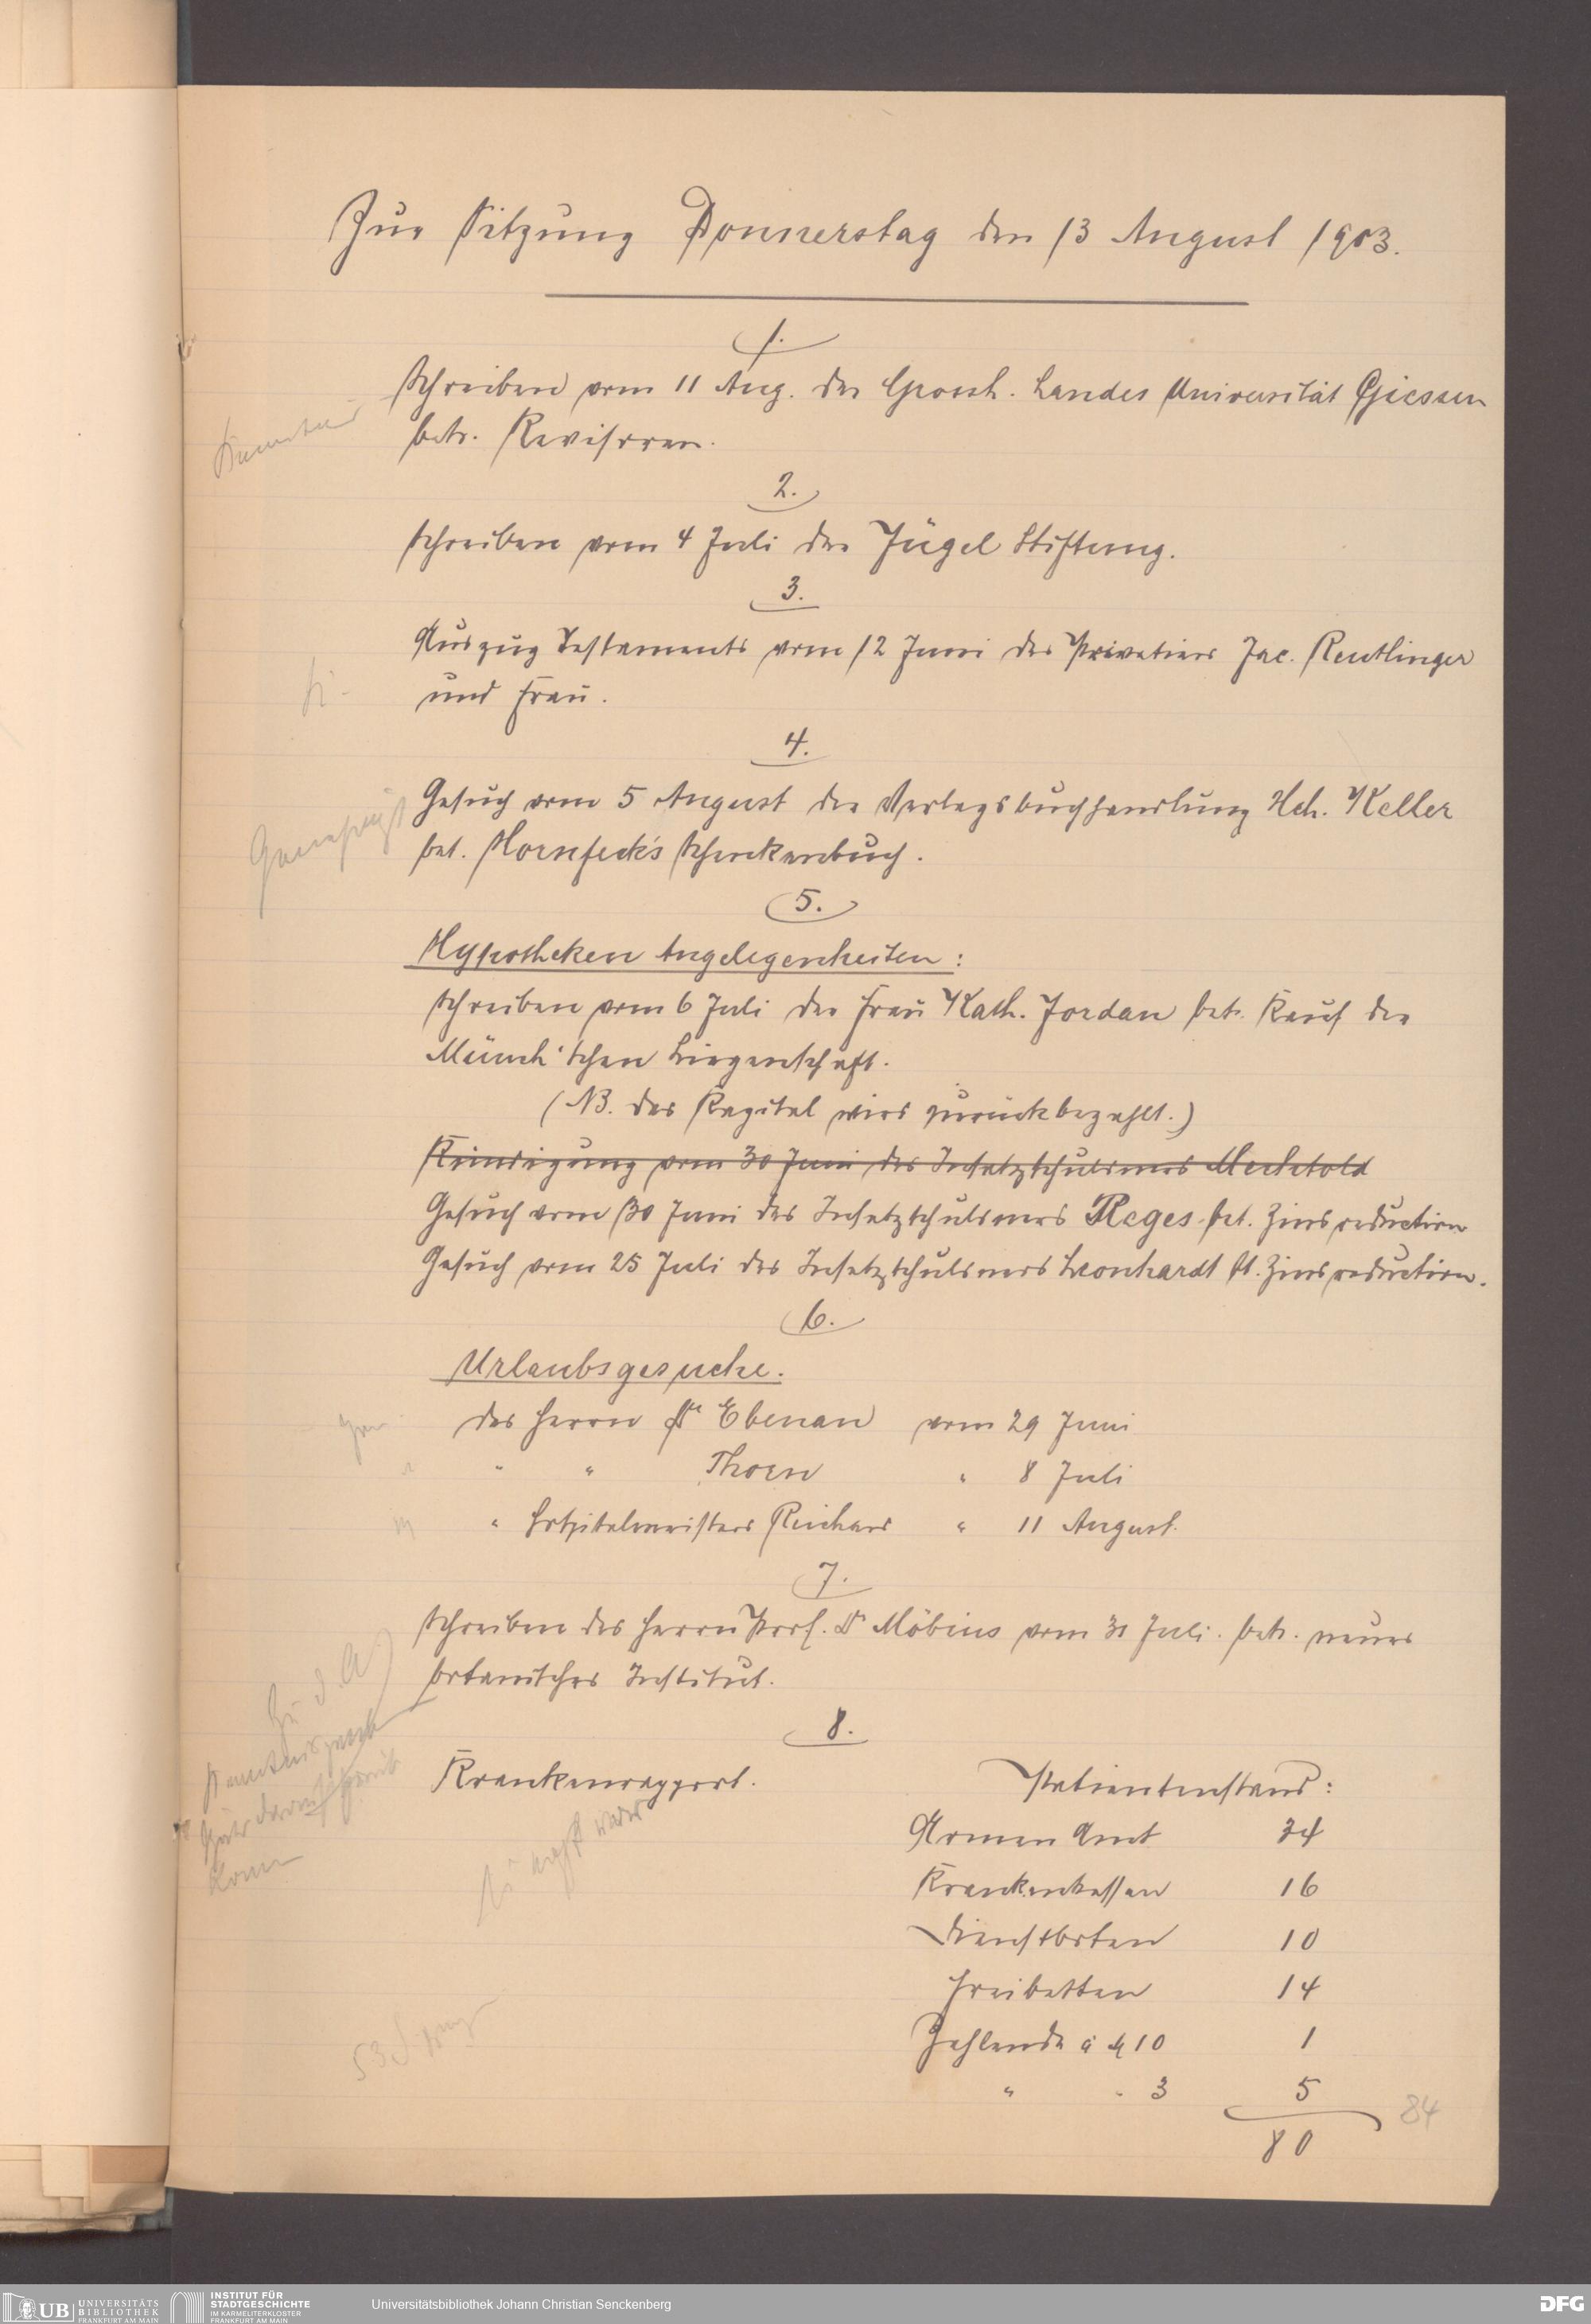 Zur Sitzung Donnerstag den 13 August 1903.
1.
Schreiben vom 11 Aug. der Grossh. Landes Universität Giessen
betr. Revisoren.
2.
Schreiben vom 4 Juli der Jügel Stiftung.
3.
Auszug Testaments vom 12 Juni des Privatiers Jac. Reutlinger
und Frau.
4.
Genehmigt
Gesuch vom 5 August der Verlagsbuchhandlung Hch. Keller
bet. Hornfeck's Schenkenbuch.
5.
Hypotheken Angelegenheiten:
Schreiben vom 6 Juli der Frau Kath. Jordan betr. Kauf der
Münch'schen Liegenschaft.
(NB. das Kapital wird zurückbezahlt.)
Kündigung vom 30 Juni des Insatzschuldners
Gesuch vom 30 Juni des Insatzschuldners Reges bet. Zinsreduction
Gesuch vom 25 Juli des Insatzschuldners Leonhardt bt. Zinsreduction.
6.
Urlaubsgesuche.
des Herrn Dr Ebenau vom 29 Juni
" " Thorn " 8 Juli
" Hospitalmeisters Reichard " 11 August.
7.
Schreiben des Herrn Prof. Dr Möbius vom 31 Juli. betr. neues
botanisches Institut.
Zu d. A
8.
Krankenrapport. Patientenstand:
Armen Amt 34
Krankenkassen 16
Dienstboten 10
Freibetten 14
Zahlende à M 10 1
" " 3 5
80
84
UB UNIVERSITÄTS
BIBLIOTHEK
FRANKFURT AM MAIN
INSTITUT FÜR
STADTGESCHICHTE
IM KARMELITERKLOSTER
FRANKFURT AM MAIN
Universitätsbibliothek Johann Christian Senckenberg
DFG